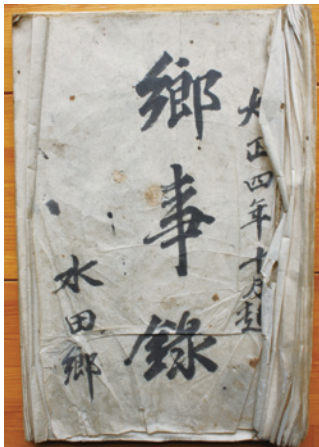 大正四年十月起
鄉事錄
水田鄉